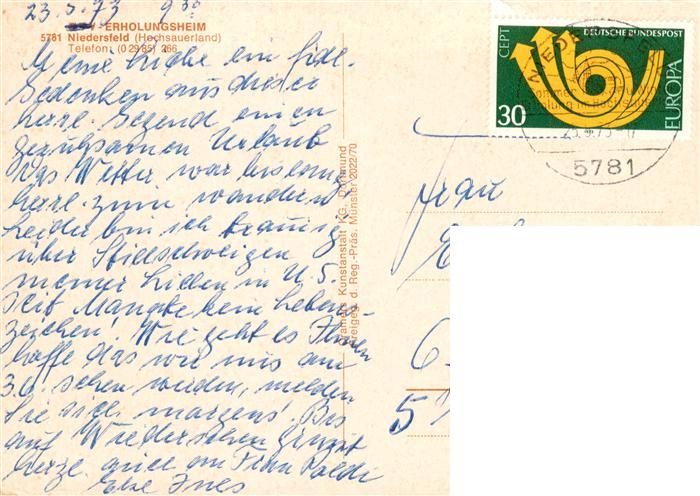 23.5.73 9 30
ERHOLUNGSHEIM
5781 Niedersfeld (Hochsauerland)
Telefon (0 29 85) 266
Meine ein
Gedenken aus dieser
herrl. Gegend einen
Urlaub
das Wetter war bislang
herrl. zum wandern
leider bin ich traurig
über Stillschweigen
meiner in U.S.
seit kein Lebens-
zeichen! Wie geht es Ihnen
hoffe das wir uns am
3.6. sehen werden, melden
Sie sich morgens! Bis
auf Wiedersehen Grüsst
an Frau
Ines
Kunstanstalt KG., Dortmund
Freigeg. d. Reg.-Präs. Münster 2022/70
CEPT
DEUTSCHE BUNDESPOST
EUROPA
30
5781
Frau
6
5